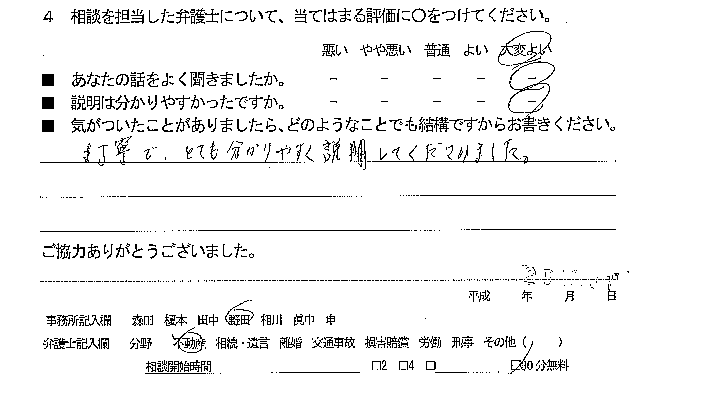 4 相談を担当した弁護士について、当てはまる評価に〇をつけてください。
悪い やや悪い 普通 よい 大変よい
■ あなたの話をよく聞きましたか。 － － － － －
■ 説明は分かりやすかったですか。 － － － － －
■ 気がついたことがありましたら、どのようなことでも結構ですからお書きください。
丁寧で、とても分かりやすく説明してくださいました。
ご協力ありがとうございました。
平成 年 月 日
事務所記入欄 森田 榎本 田中 相川 眞中 申
弁護士記入欄 分野 不動産 相続・遺言 離婚 交通事故 損害賠償 労働 刑事 その他（ ）
相談開始時間 □2 4 □ 30分無料